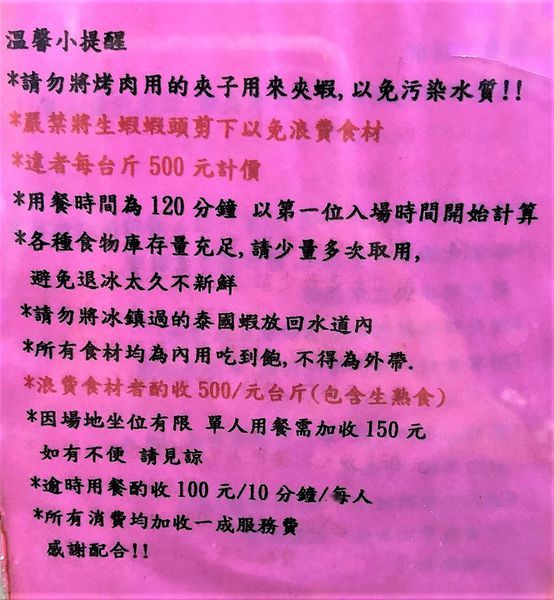 溫馨小提醒
*請勿將烤肉用的夾子用來夾蝦, 以免污染水質!!
*嚴禁將生蝦蝦頭剪下以免浪費食材
*違者每台斤 500 元計價
*用餐時間為 120 分鐘 以第一位入場時間開始計算
*各種食物庫存量充足, 請少量多次取用,
避免退冰太久不新鮮
*請勿將冰鎮過的泰國蝦放回水道內
*所有食材均為內用吃到飽, 不得為外帶.
*浪費食材者酌收 500/元台斤(包含生熟食)
*因場地坐位有限 單人用餐需加收 150 元
如有不便 請見諒
*逾時用餐酌收 100 元/10 分鐘/每人
*所有消費均加收一成服務費
感謝配合!!